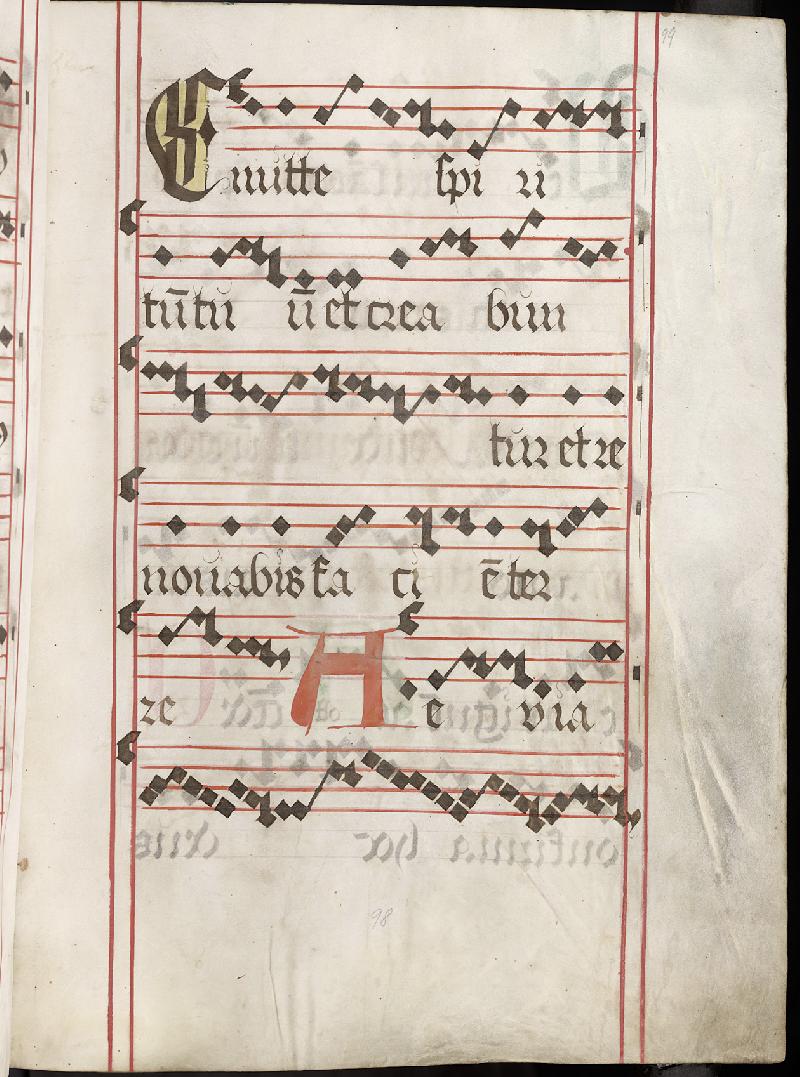 99
Emitte spi ri
tū tu ū et crea bun
tur et re
novabis fa ci ē ter
re A e via
98